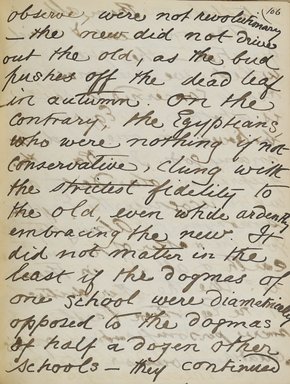 106
observe were not revolutionary
— the new did not drive
out the old, as the bud
pushes off the dead leaf
in autumn. On the
contrary, the Egyptians,
who were nothing if not
conservative, clung with
the strictest fidelity to
the old, even while ardently
embracing the new. It
did not matter in the
least if the dogmas of
one school were diametrically
opposed to the dogmas
of half a dozen other
schools — they continued